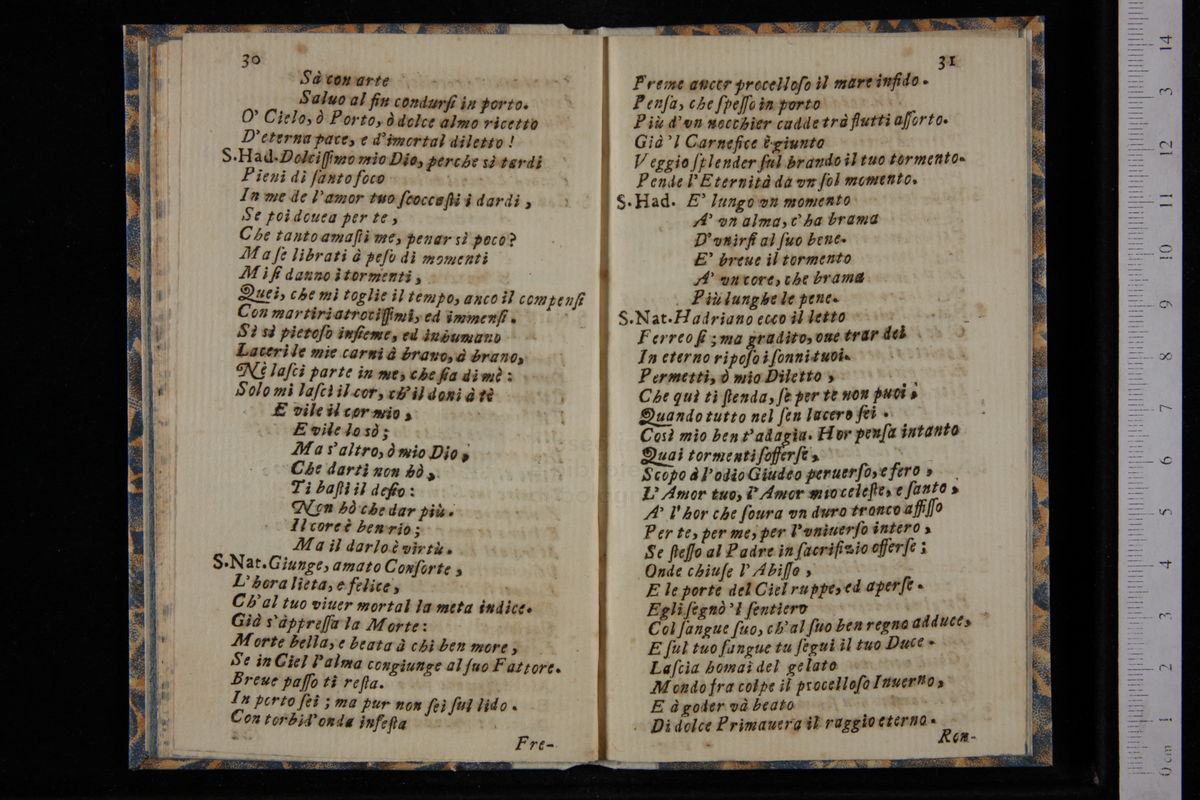 30
Sà con arte
Saluo al fin condurſi in porto.
O' Cielo, ò Porto, ò dolce almo ricetto
D'eterna pace, e d'imortal diletto !
S.Had. Dolciſſimo mio Dio, perche sì tardi
Pieni di ſanto foco
In me de l'amor tuo ſcoccaſti i dardi ,
Se poi douea per te ,
Che tanto amaſti me, penar sì poco ?
Ma ſe librati à peſo di momenti
Mi ſi danno i tormenti ,
Quei, che mi toglie il tempo, anco il compenſi
Con martiri atrociſſimi, ed immenſi .
Sì sì pietoſo inſieme, ed inhumano
Laceri le mie carni à brano, à brano,
Nè laſci parte in me, che ſia di mè :
Solo mi laſci il cor, ch'il doni à tè
E vile il cor mio ,
E vile lo sò ;
Ma s'altro, ò mio Dio ,
Che darti non hò ,
Ti baſti il deſio :
Non hò che dar più .
Il core è ben rio ;
Ma il darlo è virtù .
S.Nat. Giunge, amato Conſorte ,
L'hora lieta, e felice ,
Ch'al tuo viuer mortal la meta indice.
Già s'àppreſſa la Morte :
Morte bella, e beata à chi ben more ,
Se in Ciel l'alma congiunge al ſuo Fattore.
Breue paſſo ti reſta.
In porto ſei ; ma pur non ſei ſul lido .
Con torbid'onda infeſta
Fre-
31
Freme ancor procelloſo il mare infido .
Penſa, che ſpeſſo in porto
Più d'vn nocchier cadde trà flutti aſſorto.
Già 'l Carnefice è giunto
Veggio ſplender ſul brando il tuo tormento.
Pende l'Eternità da vn ſol momento.
S.Had. E' lungo vn momento
A' vn alma, c'ha brama
D'vnirſi al ſuo bene.
E' breue il tormento
A' vn core, che brama
Più lunghe le pene.
S.Nat. Hadriano ecco il letto
Ferreo ſi ; ma gradito, oue trar dei
In eterno ripoſo i ſonni tuoi.
Permetti, ò mio Diletto ,
Che quì ti ſtenda, ſe per te non puoi ;
Quando tutto nel ſen lacero ſei .
Così mio ben t'adagia. Hor penſa intanto
Quai tormenti ſofferſe ,
Scopo à l'odio Giudeo peruerſo, e fero ,
L'Amor tuo, l'Amor mio celeſte, e ſanto ,
A' l'hor che ſoura vn duro tronco affiſſo
Per te, per me, per l'vniuerſo intero ,
Se ſteſſo al Padre in ſacrifizio offerſe ;
Onde chiuſe l'Abiſſo ,
E le porte del Ciel ruppe, ed aperſe .
Egli ſegnò 'l ſentiero
Col ſangue ſuo, ch'al ſuo ben regno adduce,
E ſul tuo ſangue tu ſegui il tuo Duce .
Laſcia homai del gelato
Mondo fra colpe il procelloſo Inuerno ,
E à goder và beato
Di dolce Primauera il raggio eterno.
Ron-
0 cm 1 2 3 4 5 6 7 8 9 10 11 12 3 14